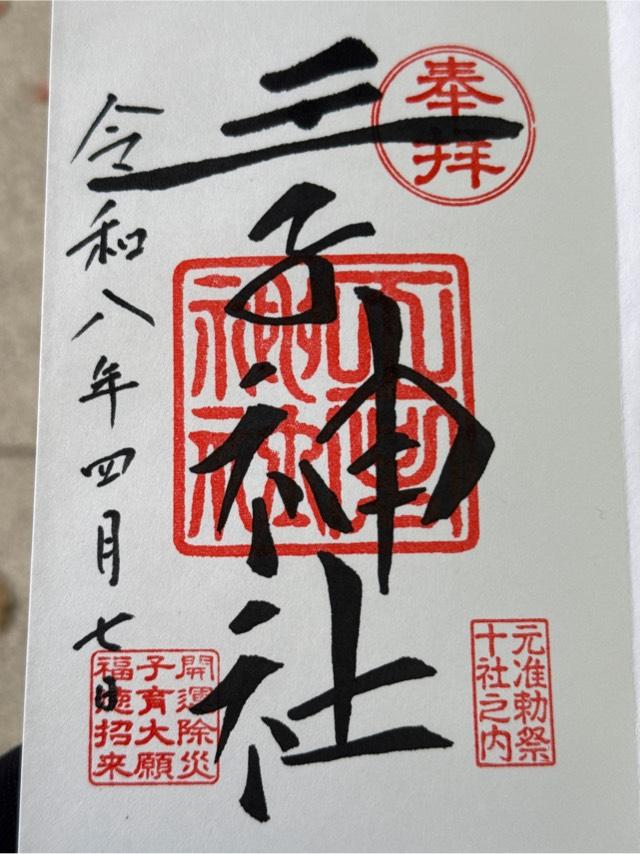 奉拝
王子神社
令和八年四月七日
元准勅祭
十社之内
開運除災
子育大願
福徳招来